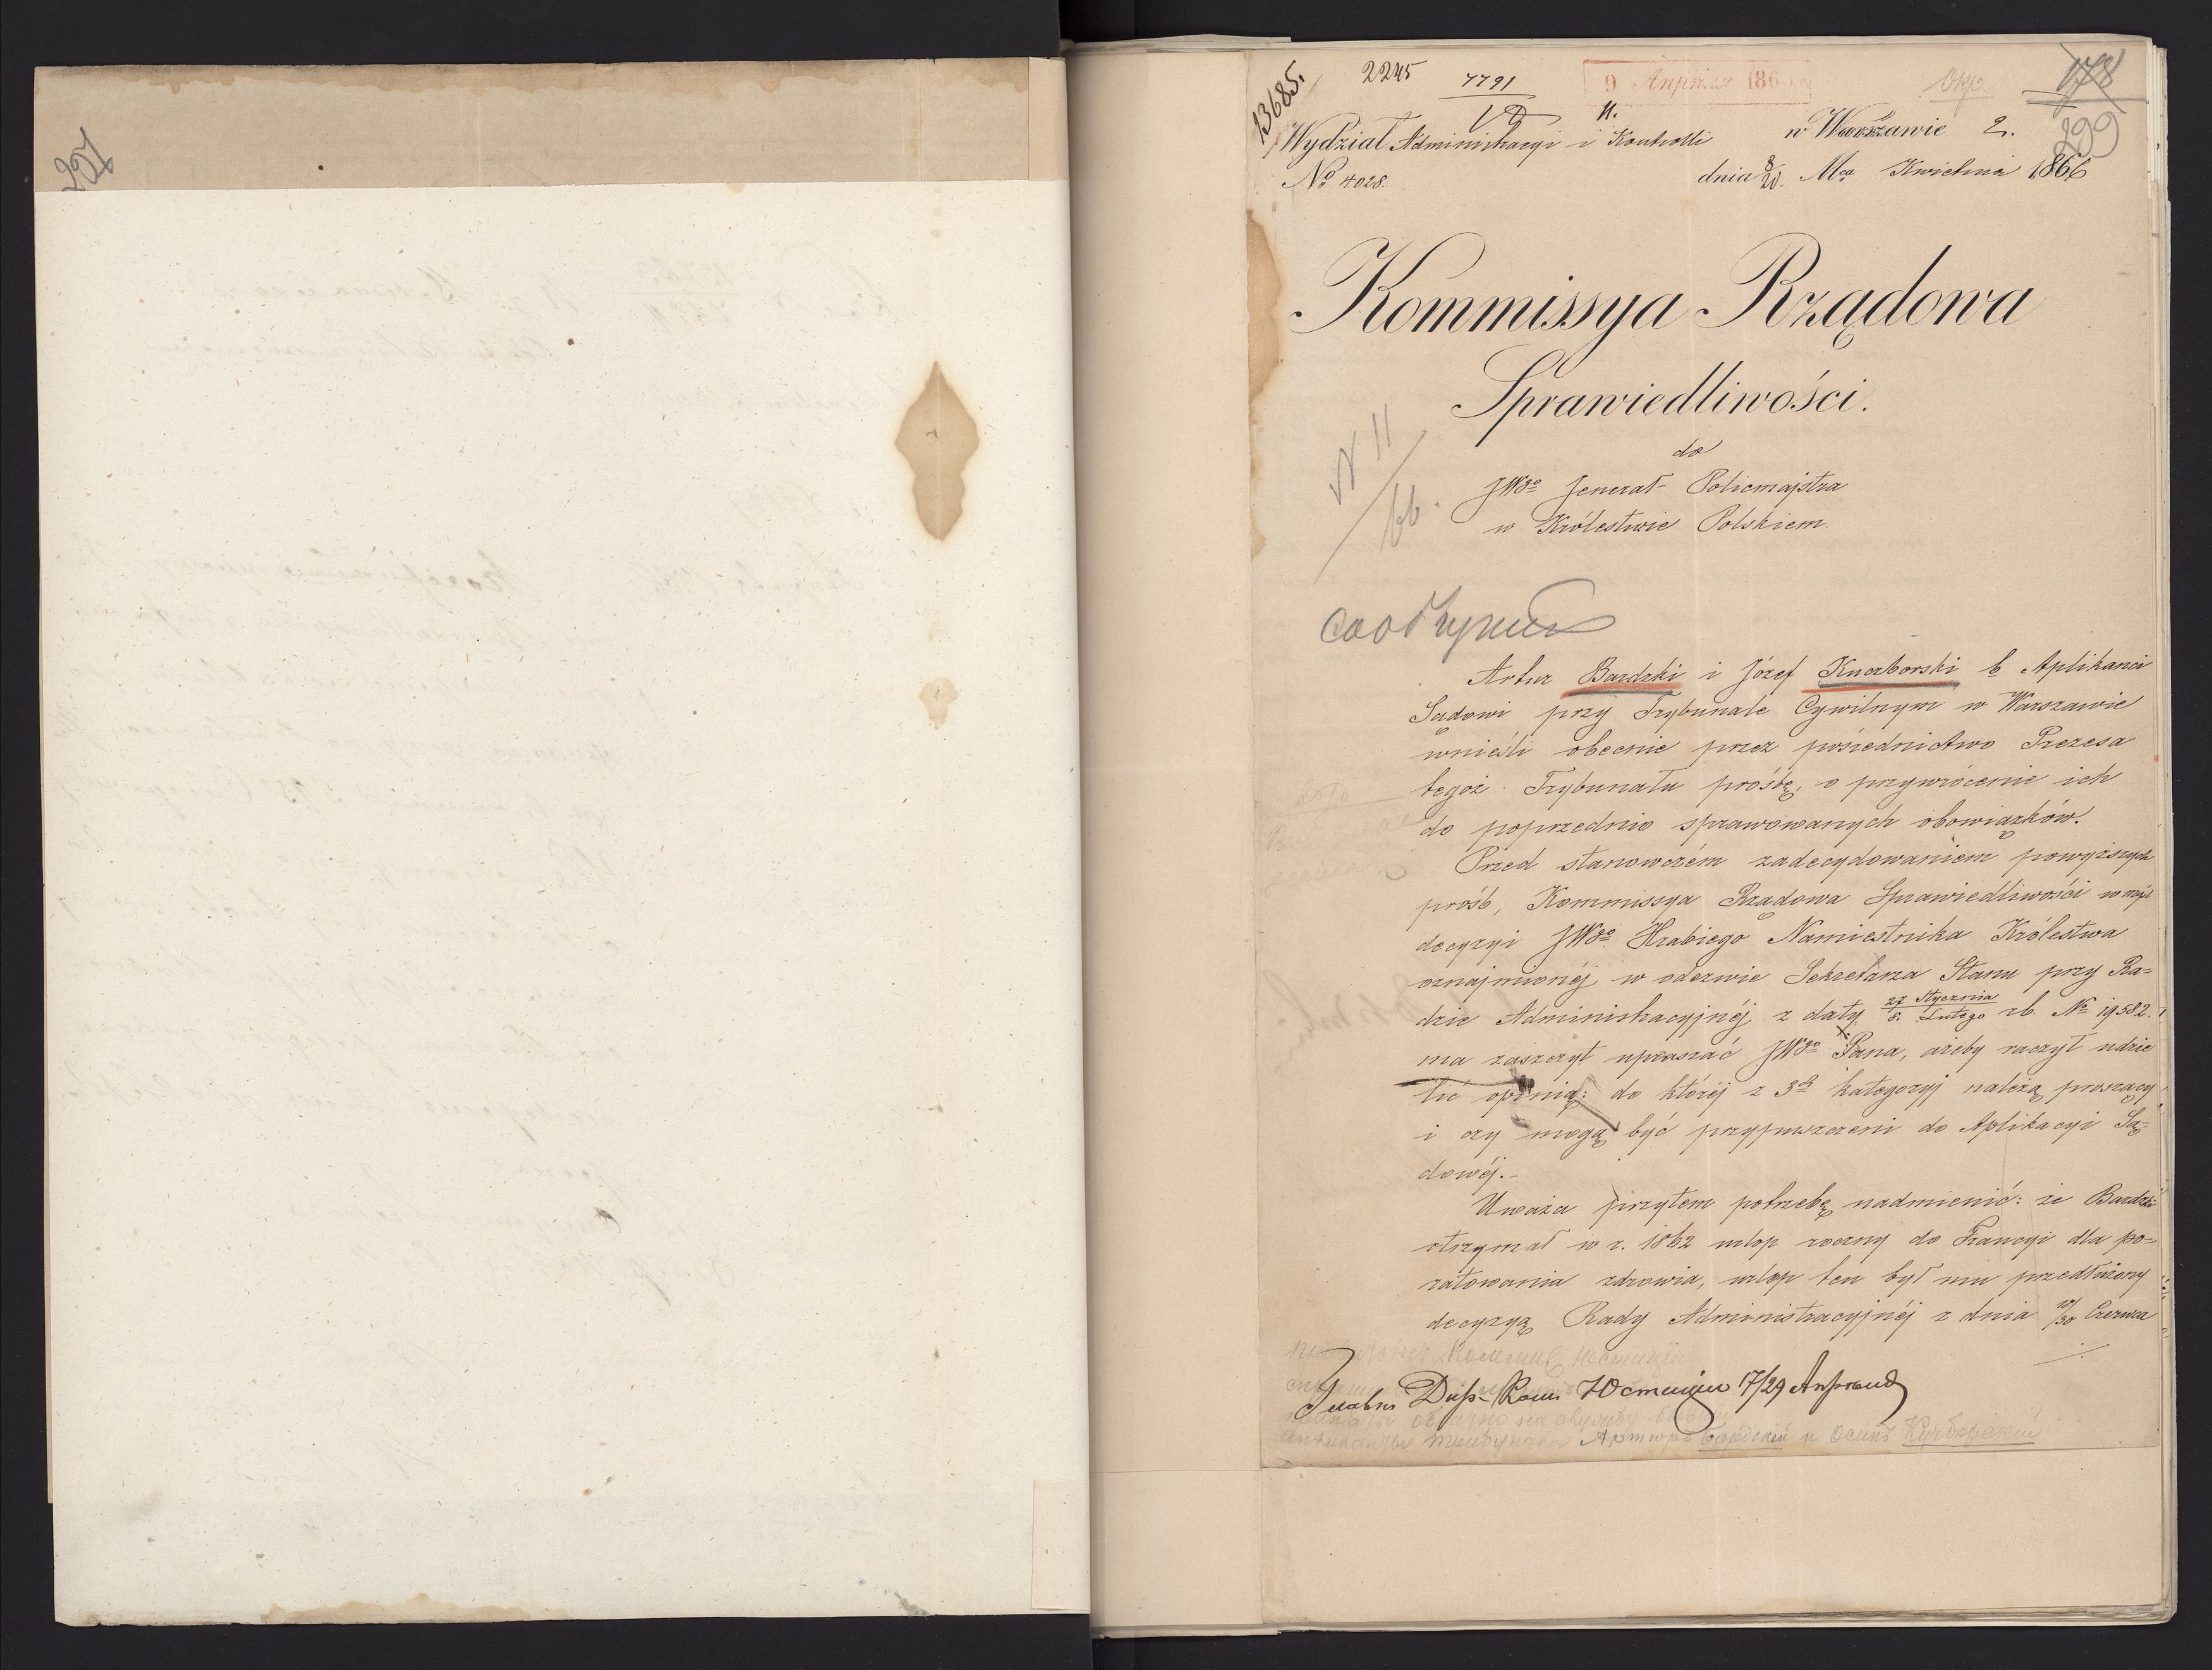 13685.
2245
7791
9 Апрѣля 186
178
299
251
Wydział Administracyi i Kontrolli
w Warszawie 2.
No 4028.
dnia 8/20. Mca Kwietnia 1866
Kommissya Rządowa
Sprawiedliwości.
do
JWgo Jenerał-Policmajstra
w Królestwie Polskiem.
N 11
Artur Bardzki i Józef Kuczborski b Aplikanci
Sądowi przy Trybunale Cywilnym w Warszawie
wnieśli obecnie przez pośrednictwo Prezesa
tegoż Trybunału prośbę, o przywrócenie ich
do poprzednio sprawowanych obowiązków.
Przed stanowczém zadecydowaniem powyższych
prośb, Kommissya Rządowa Sprawiedliwości w myśl
decyzyi JWgo Hrabiego Namiestnika Królestwa
oznajmionéj w odezwie Sekretarza Stanu przy Ra=
dzie Administracyjnéj z daty 27 Stycznia / 8. Lutego rb. No 19582.
ma zaszczyt upraszać JWgo Pana, ażeby raczył udzie
lić opinią: do któréj z 3ch kategoryj należą proszący
i czy mogą być przypuszczeni do Aplikacyi Są=
dowéj.-
Uważa przytem potrzebę nadmienić: że Bardzki
otrzymał w r. 1862 urlop roczny do Francyi dla po=
ratowania zdrowia, urlop ten był mu przedłużony
decyzyą Rady Administracyjnéj z dnia 18/30 Czerwca
Главн Дир. Ком Юстиции 17/29 Апрѣля
Артуръ Бардскій и Осипъ Кучборскій